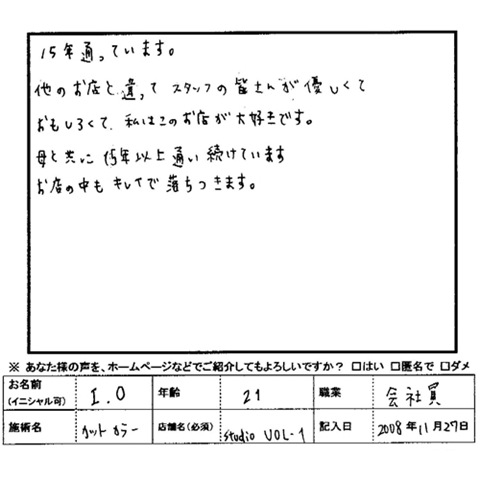 15年通っています。
他のお店と違って スタッフの皆さんが優しくて
おもしろくて、私はこのお店が大好きです。
母と共に 15年以上通い続けています
お店の中も キレイで落ちつきます。
※ あなた様の声を、ホームページなどでご紹介してもよろしいですか？ 口はい 口匿名で 口ダメ
お名前 (イニシャル可) I.O 年齢 21 職業 会社員
施術名 カット カラー 店舗名(必須) studio VOL-1 記入日 2008年11月27日